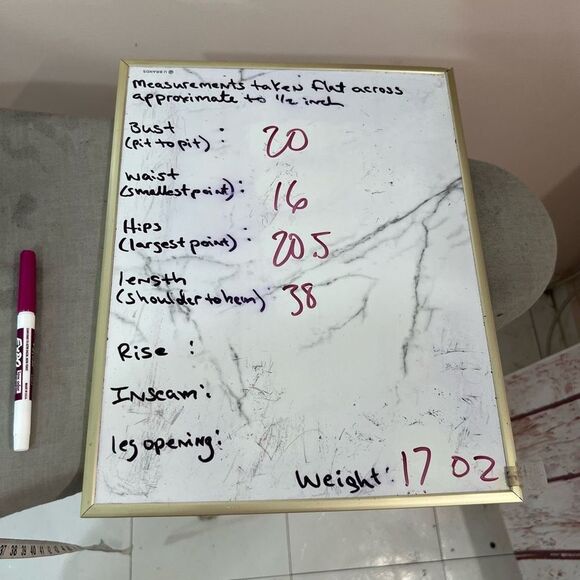 U BRANDS
measurements taken flat across
approximate to 1/2 inch
Bust
(pit to pit) : 20
waist
(smallest point) : 16
Hips
(largest point) : 20.5
length
(shoulder to hem) : 38
Rise :
Inseam :
leg opening :
Weight : 17 oz
EXPO
37 38 39 40 41 42